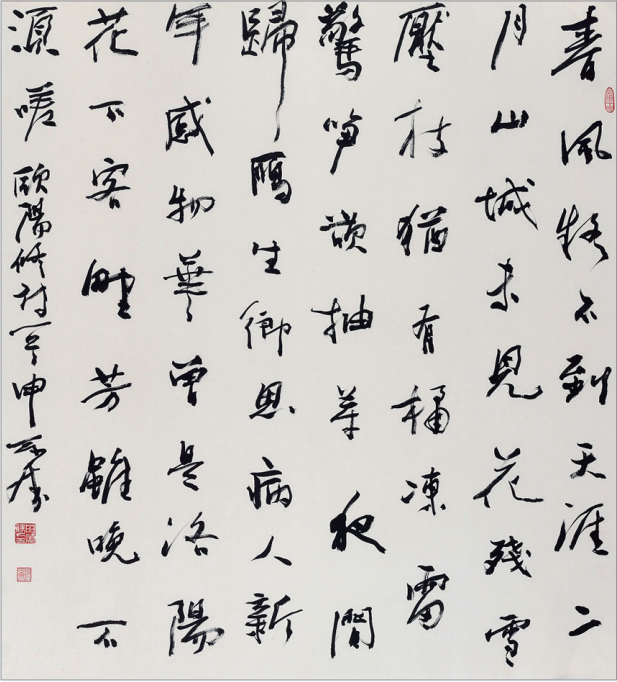 春風疑不到天涯二
月山城未見花殘雪
壓枝猶有橘凍雷
驚笋欲抽芽夜聞
歸鴈生鄉思病入新
年感物華曾是洛陽
花下客野芳雖晚不
須嗟 歐陽修詩一首 申萬勝